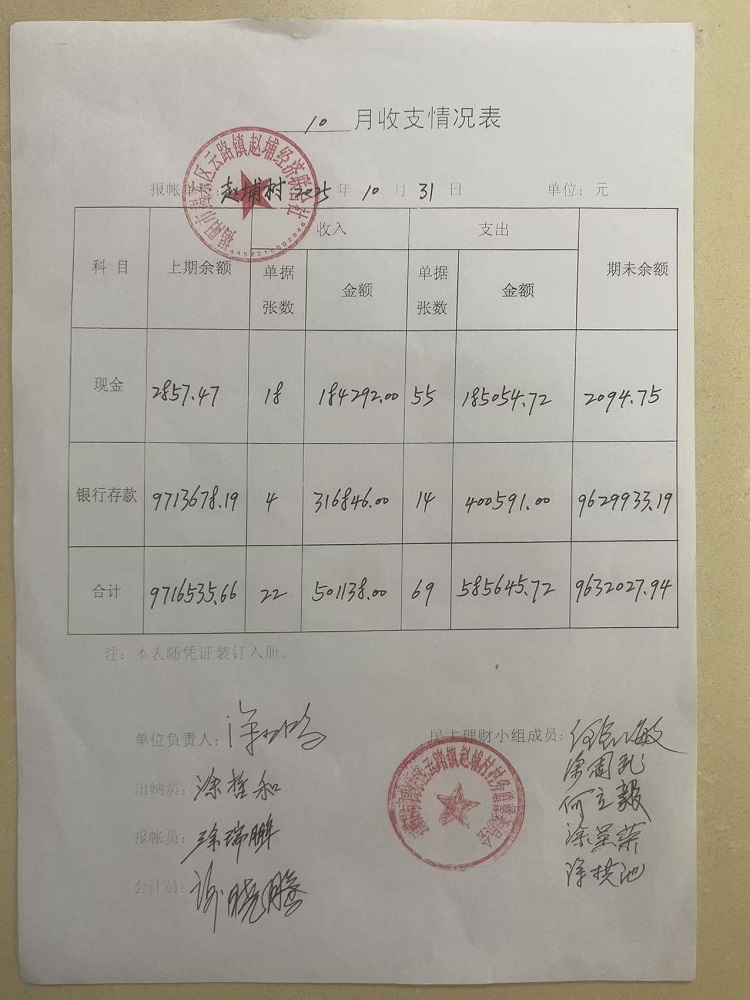 10 月收支情况表
报帐单位: 赵埔村 2025 年 10 月 31 日 单位: 元
科目 上期余额 收入 支出 期未余额
单据张数 金额 单据张数 金额
现金 2857.47 18 184292.00 55 185054.72 2094.75
银行存款 9713678.19 4 316846.00 14 400591.00 9629933.19
合计 9716535.66 22 501138.00 69 585645.72 9632027.94
注: 本表随凭证装订入册。
单位负责人: 民主理财小组成员:
出纳员: 涂哲和
报帐员: 涂瑞鹏
何立毅
会计员: 谢晓腾
云路镇赵埔经济联合社
云路镇赵埔村村务监督委员会